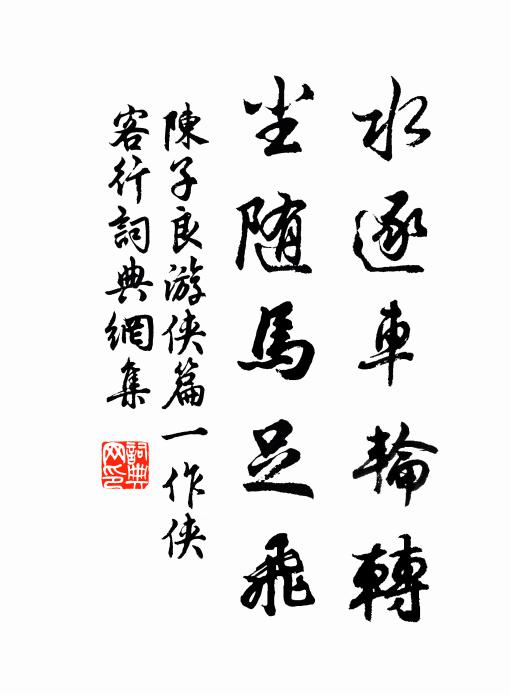 水逐車輪轉
尘随馬足飛
陳子良游俠篇一作俠
客行詞典網集
詞典网印